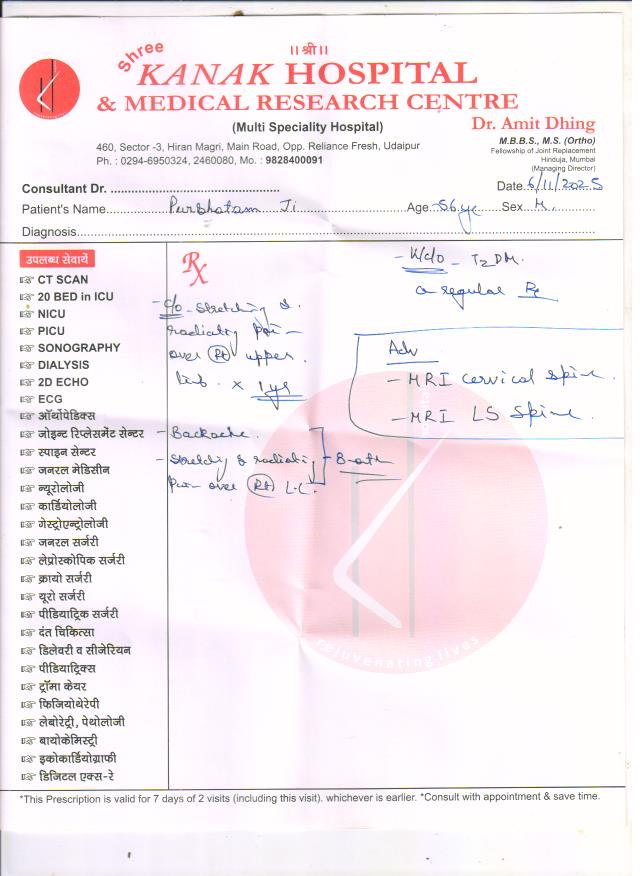 Shree
॥ श्री ॥
KANAK HOSPITAL
& MEDICAL RESEARCH CENTRE
(Multi Speciality Hospital)
Dr. Amit Dhing
M.B.B.S., M.S. (Ortho)
Fellowship of Joint Replacement
Hinduja, Mumbai
(Managing Director)
460, Sector -3, Hiran Magri, Main Road, Opp. Reliance Fresh, Udaipur
Ph. : 0294-6950324, 2460080, Mo. : 9828400091
Consultant Dr. ............................................
Date 6/11/2025
Patient's Name Purshotam Ji Age 56 yr Sex M
Diagnosis
उपलब्ध सेवायें
CT SCAN
20 BED in ICU
NICU
PICU
SONOGRAPHY
DIALYSIS
2D ECHO
ECG
ऑर्थोपेडिक्स
जोइन्ट रिप्लेसमेंट सेन्टर
स्पाइन सेन्टर
जनरल मेडिसीन
न्यूरोलोजी
कार्डियोलोजी
गेस्ट्रोएन्ट्रोलोजी
जनरल सर्जरी
लेप्रोस्कोपिक सर्जरी
क्रायो सर्जरी
यूरो सर्जरी
पीडियाट्रिक सर्जरी
दंत चिकित्सा
डिलेवरी व सीजेरियन
पीडियाट्रिक्स
ट्रॉमा केयर
फिजियोथेरेपी
लेबोरेट्री, पेथोलोजी
बायोकेमिस्ट्री
इकोकार्डियोग्राफी
डिजिटल एक्स-रे
Rx
- K/c/o - T2DM.
on regular Rx
- C/o - stretching &
radiating pain
over (Rt) upper
limb x 1 yr
Adv
- MRI cervical spine.
- MRI LS Spine.
- Backache.
- Stretching & radiating
pain over (Rt) L.L.
rejuvenating lives
*This Prescription is valid for 7 days of 2 visits (including this visit). whichever is earlier. *Consult with appointment & save time.